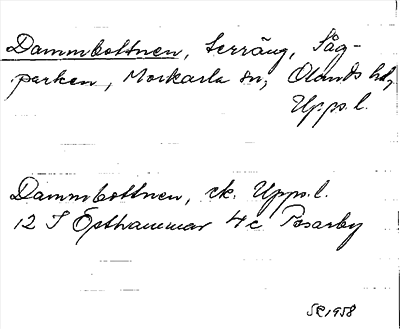 Dammbottnen, Terräng, Såg-
parken, Morkarla sn, Olands hd,
Upps. l.
Dammbottnen, ek. Upps. l.
12 I Östhammar 4c Persarby
SE 1958